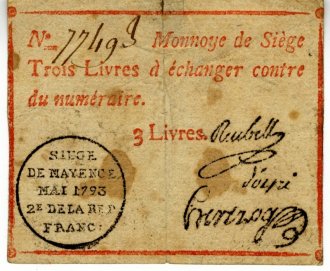 No. 77493 Monnoye de Siège
Trois Livres à échanger contre
du numéraire.
3 Livres. Reubell
SIEGE
DE MAYENCE
MAI 1793
2E DE LA REP
FRANC: